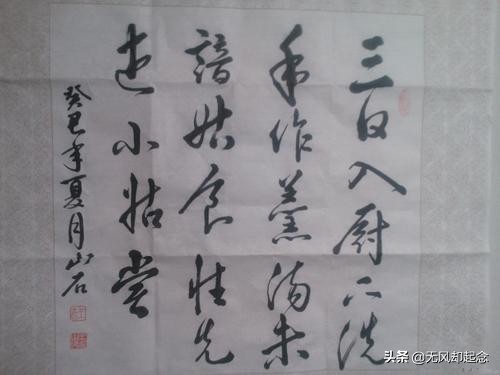 三日入厨下洗
手作羹汤未
諳姑食性先
遣小姑尝
癸巳年夏月山石
头条 @无风却起念